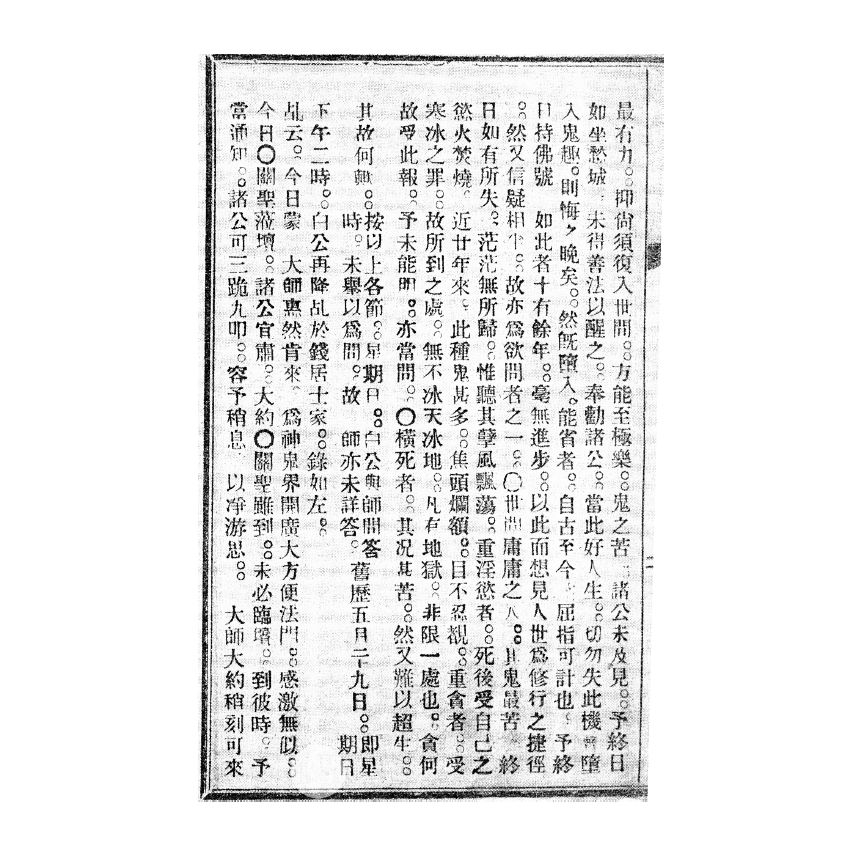 最有力。。抑尙須復入世間。。方能至極樂。。鬼之苦、諸公未及見。。予終日
如坐愁城、未得善法以醒之。。奉勸諸公。。當此好人生。。切勿失此機會墮
入鬼趣。則悔之晚矣。。然旣墮入。能省者。。自古至今、屈指可計也。予終
日持佛號 如此者十有餘年。。毫無進步。。以此而想見人世爲修行之捷徑
。。然又信疑相半。。故亦爲欲問者之一。〇世間庸庸之人。。其鬼最苦 終
日如有所失。茫茫無所歸。惟聽其孽風飄蕩。重淫慾者。。死後受自己之
慾火焚燒。近廿年來。此種鬼甚多。。焦頭爛額。。目不忍覩。。重貪者。。受
寒冰之罪。。故所到之處。。無不冰天冰地。。凡有地獄。。非限一處也。貪何
故受此報。予未能明。。亦當問。〇橫死者。。其況甚苦。。然又難以超生。。
其故何歟。。按以上各節。。星期日。。白公與師問答時。。未舉以爲問。。故 師亦未詳答。舊歷五月二十九日。。卽星期日
下午二時。。白公再降乩於錢居士家。。錄如左。。
乩云。。今日蒙 大師惠然肯來。爲神鬼界開廣大方便法門。。感激無似。。
今日〇關聖蒞壇。。諸公宜肅。。大約〇關聖雖到。。未必臨壇。。到彼時。予
當通知。。諸公可三跪九叩。。容予稍息、以凈游思。。 大師大約稍刻可來